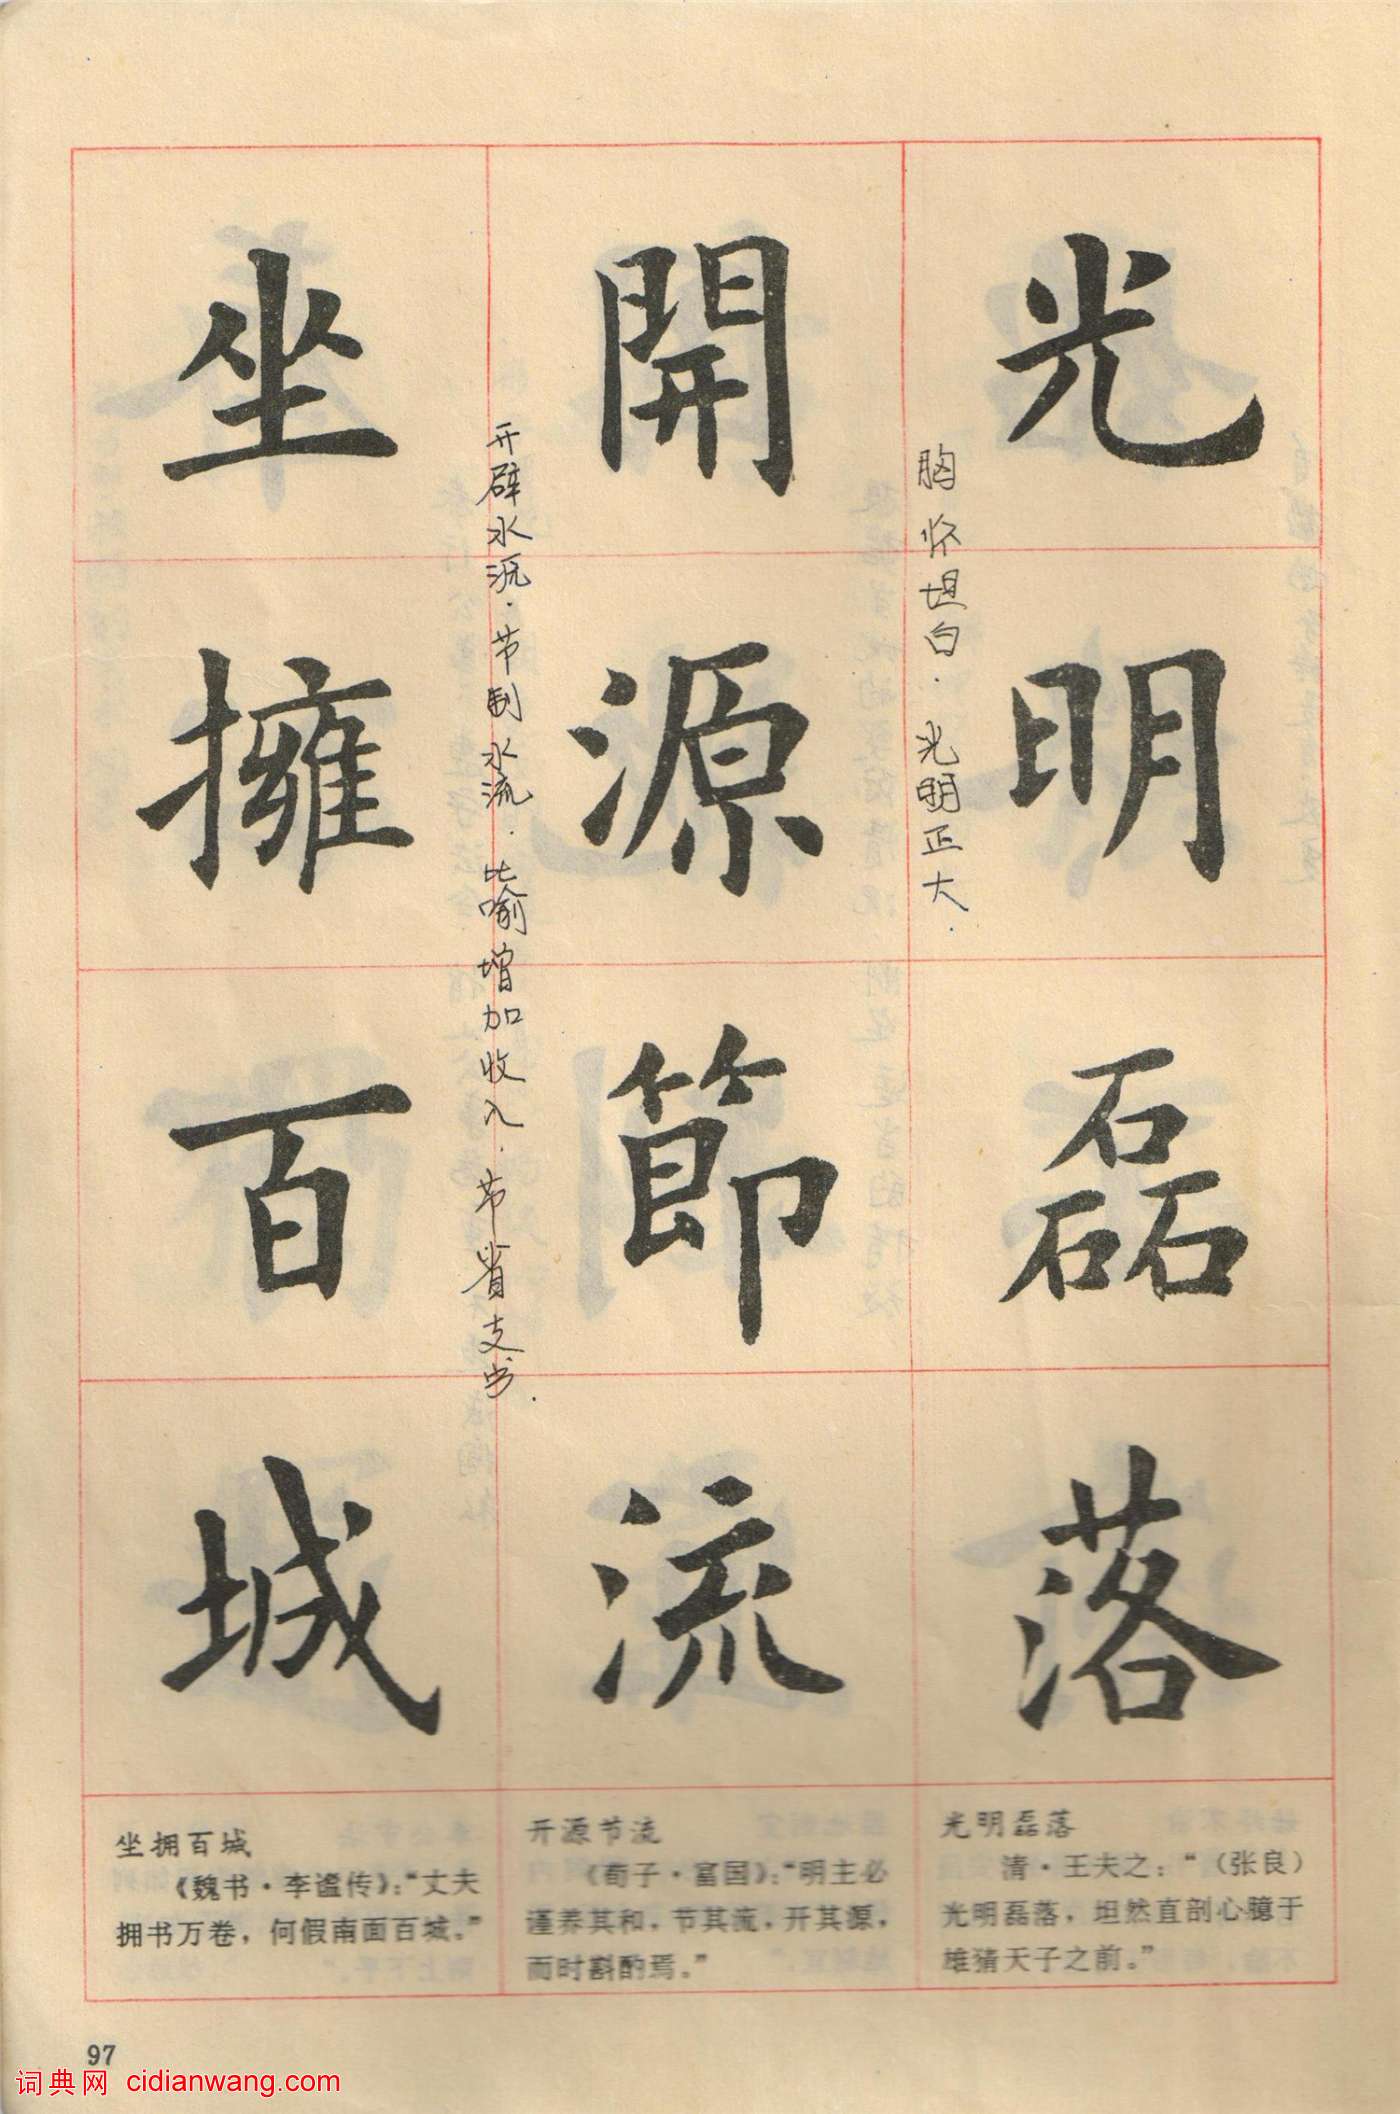 光明磊落
胸怀坦白.光明正大.
開源節流
开辟水源.节制水流.比喻增加收入.节省支出.
坐擁百城
光明磊落
清·王夫之：“（张良）
光明磊落，坦然直剖心臆于
雄猜天子之前。”
开源节流
《荀子·富国》：“明主必
谨养其和，节其流，开其源，
而时斟酌焉。”
坐拥百城
《魏书·李谧传》：“丈夫
拥书万卷，何假南面百城。”
97
词典网 cidianwang.com